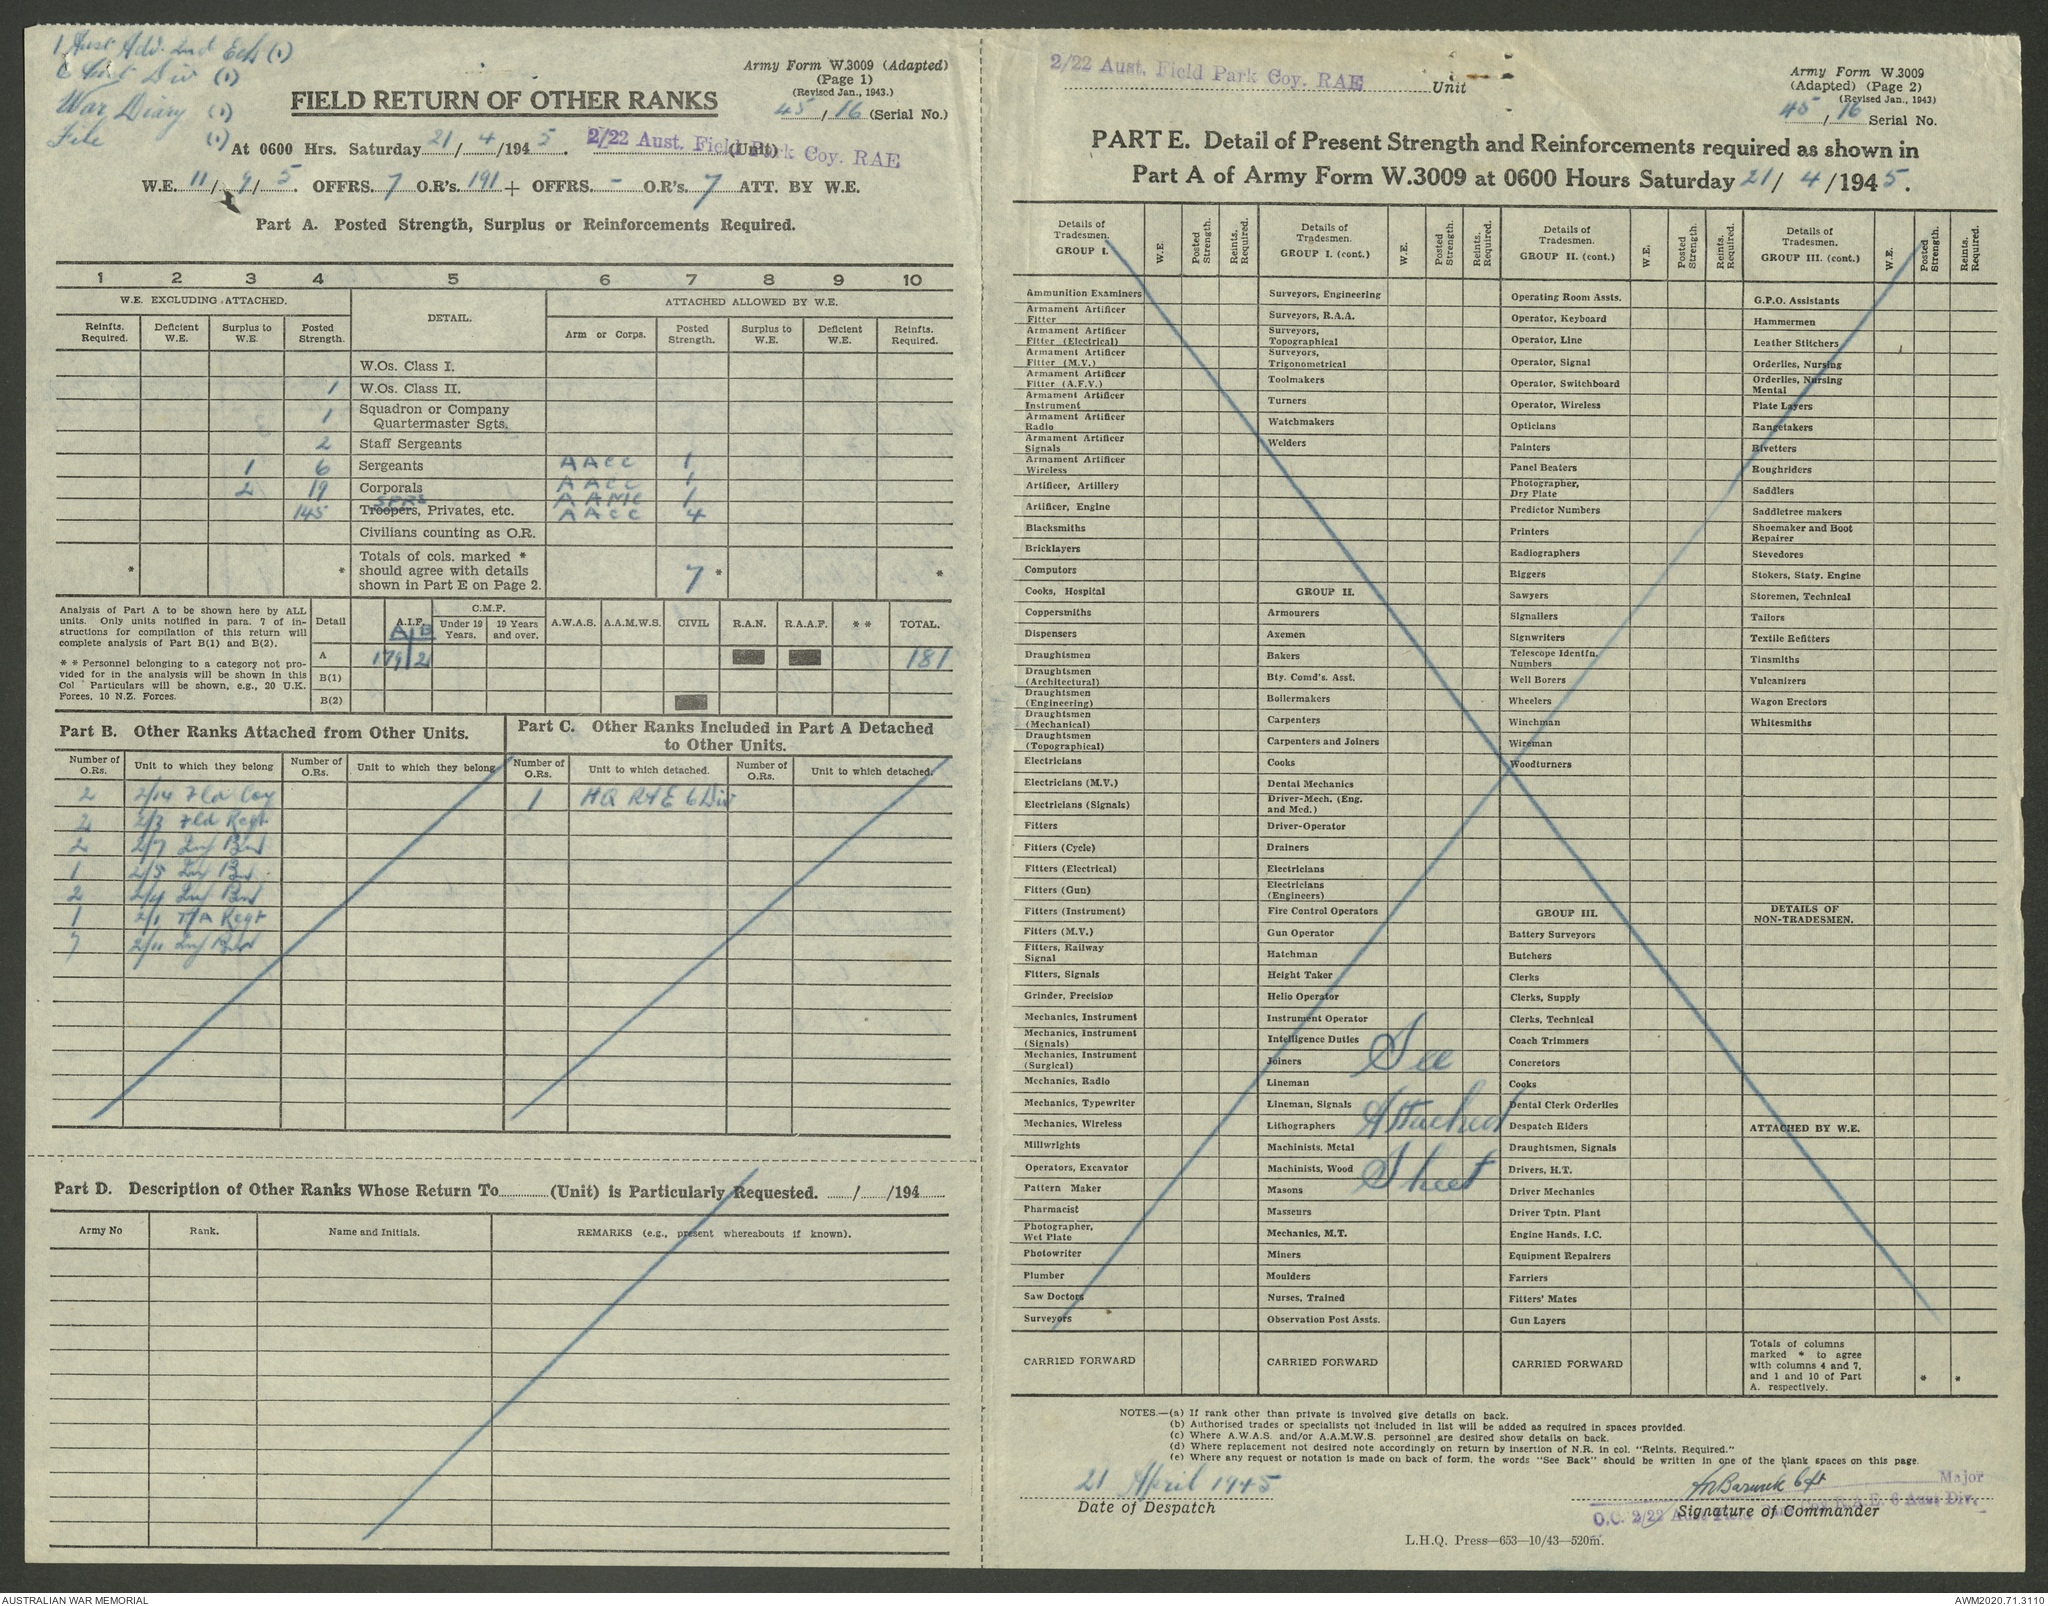 1 Aust Adv. 2nd Ech (1)
6 Aust Div (1)
War Diary (1)
File (1)
Army Form W.3009 (Adapted)
(Page 1)
(Revised Jan., 1943.)
45 / 16 (Serial No.)
FIELD RETURN OF OTHER RANKS
At 0600 Hrs. Saturday 21 / 4 /194 5. 2/22 Aust. Field Park Coy. RAE (Unit)
W.E. 11 / 9 / 5. OFFRS. 7 O.R's. 191 + OFFRS. - O.R's. 7 ATT. BY W.E.
Part A. Posted Strength, Surplus or Reinforcements Required.
1 2 3 4 5 6 7 8 9 10
W.E. EXCLUDING ATTACHED. DETAIL. ATTACHED ALLOWED BY W.E.
Reinfts. Required. Deficient W.E. Surplus to W.E. Posted Strength. Arm or Corps. Posted Strength. Surplus to W.E. Deficient W.E. Reinfts. Required.
W.Os. Class I.
1 W.Os. Class II.
1 Squadron or Company Quartermaster Sgts.
2 Staff Sergeants
1 6 Sergeants AACC 1
2 19 Corporals AACC 1
SPRS AAMC 1
145 Troopers, Privates, etc. AACC 4
Civilians counting as O.R.
Totals of cols. marked *
should agree with details
shown in Part E on Page 2.
* * 7 * *
Analysis of Part A to be shown here by ALL
units. Only units notified in para. 7 of in-
structions for compilation of this return will
complete analysis of Part B(1) and B(2).
* * Personnel belonging to a category not pro-
vided for in the analysis will be shown in this
Col Particulars will be shown, e.g., 20 U.K.
Forces, 10 N.Z. Forces.
Detail A.I.F. C.M.F. Under 19 Years. 19 Years and over. A.W.A.S. A.A.M.W.S. CIVIL R.A.N. R.A.A.F. * * TOTAL.
A/B
A 179/2 181
B(1)
B(2)
Part B. Other Ranks Attached from Other Units.
Number of O.Rs. Unit to which they belong Number of O.Rs. Unit to which they belong
2 2/14 Fld Coy
2 2/3 Fld Regt
2 2/7 Inf Bn
1 2/5 Inf Bn
2 2/4 Inf Bn
1 2/1 T/A Regt
7 2/11 Inf Bn
Part C. Other Ranks Included in Part A Detached
to Other Units.
Number of O.Rs. Unit to which detached. Number of O.Rs. Unit to which detached.
1 HQ RAE 6 Div
Part D. Description of Other Ranks Whose Return To (Unit) is Particularly Requested. / /194
Army No Rank. Name and Initials. REMARKS (e.g., present whereabouts if known).
2/22 Aust. Field Park Coy. RAE Unit
Army Form W.3009
(Adapted) (Page 2)
(Revised Jan., 1943)
45 / 16 Serial No.
PART E. Detail of Present Strength and Reinforcements required as shown in
Part A of Army Form W.3009 at 0600 Hours Saturday 21 / 4 /194 5.
Details of Tradesmen. GROUP I. W.E. Posted Strength. Reints. Required.
Ammunition Examiners
Armament Artificer Fitter
Armament Artificer Fitter (Electrical)
Armament Artificer Fitter (M.V.)
Armament Artificer Fitter (A.F.V.)
Armament Artificer Instrument
Armament Artificer Radio
Armament Artificer Signals
Armament Artificer Wireless
Artificer, Artillery
Artificer, Engine
Blacksmiths
Bricklayers
Computors
Cooks, Hospital
Coppersmiths
Dispensers
Draughtsmen
Draughtsmen (Architectural)
Draughtsmen (Engineering)
Draughtsmen (Mechanical)
Draughtsmen (Topographical)
Electricians
Electricians (M.V.)
Electricians (Signals)
Fitters
Fitters (Cycle)
Fitters (Electrical)
Fitters (Gun)
Fitters (Instrument)
Fitters (M.V.)
Fitters, Railway Signal
Fitters, Signals
Grinder, Precision
Mechanics, Instrument
Mechanics, Instrument (Signals)
Mechanics, Instrument (Surgical)
Mechanics, Radio
Mechanics, Typewriter
Mechanics, Wireless
Millwrights
Operators, Excavator
Pattern Maker
Pharmacist
Photographer, Wet Plate
Photowriter
Plumber
Saw Doctors
Surveyors
CARRIED FORWARD
Details of Tradesmen. GROUP I. (cont.) W.E. Posted Strength. Reints. Required.
Surveyors, Engineering
Surveyors, R.A.A.
Surveyors, Topographical
Surveyors, Trigonometrical
Toolmakers
Turners
Watchmakers
Welders
GROUP II.
Armourers
Axemen
Bakers
Bty. Comd's. Asst.
Boilermakers
Carpenters
Carpenters and Joiners
Cooks
Dental Mechanics
Driver-Mech. (Eng. and Med.)
Driver-Operator
Drainers
Electricians
Electricians (Engineers)
Fire Control Operators
Gun Operator
Hatchman
Height Taker
Helio Operator
Instrument Operator
Intelligence Duties
Joiners
Lineman
Lineman, Signals
Lithographers
Machinists, Metal
Machinists, Wood
Masons
Masseurs
Mechanics, M.T.
Miners
Moulders
Nurses, Trained
Observation Post Assts.
CARRIED FORWARD
See
Attached
Sheet
Details of Tradesmen. GROUP II. (cont.) W.E. Posted Strength. Reints. Required.
Operating Room Assts.
Operator, Keyboard
Operator, Line
Operator, Signal
Operator, Switchboard
Operator, Wireless
Opticians
Painters
Panel Beaters
Photographer, Dry Plate
Predictor Numbers
Printers
Radiographers
Riggers
Sawyers
Signallers
Signwriters
Telescope Identfn. Numbers
Well Borers
Wheelers
Winchman
Wireman
Woodturners
GROUP III.
Battery Surveyors
Butchers
Clerks
Clerks, Supply
Clerks, Technical
Coach Trimmers
Concretors
Cooks
Dental Clerk Orderlies
Despatch Riders
Draughtsmen, Signals
Drivers, H.T.
Driver Mechanics
Driver Tptn. Plant
Engine Hands, I.C.
Equipment Repairers
Farriers
Fitters' Mates
Gun Layers
CARRIED FORWARD
Details of Tradesmen. GROUP III. (cont.) W.E. Posted Strength. Reints. Required.
G.P.O. Assistants
Hammermen
Leather Stitchers
Orderlies, Nursing
Orderlies, Nursing Mental
Plate Layers
Rangetakers
Rivetters
Roughriders
Saddlers
Saddletree makers
Shoemaker and Boot Repairer
Stevedores
Stokers, Staty. Engine
Storemen, Technical
Tailors
Textile Refitters
Tinsmiths
Vulcanizers
Wagon Erectors
Whitesmiths
DETAILS OF NON-TRADESMEN.
ATTACHED BY W.E.
Totals of columns
marked * to agree
with columns 4 and 7,
and 1 and 10 of Part
A. respectively. * *
NOTES.—(a) If rank other than private is involved give details on back.
(b) Authorised trades or specialists not included in list will be added as required in spaces provided.
(c) Where A.W.A.S. and/or A.A.M.W.S. personnel are desired show details on back.
(d) Where replacement not desired note accordingly on return by insertion of N.R. in col. "Reints. Required."
(e) Where any request or notation is made on back of form, the words "See Back" should be written in one of the blank spaces on this page.
21 April 1945
Date of Despatch
Major
O.C. 2/22 Aust Field R.A.E. 6 Aust Div.
Signature of Commander
L.H.Q. Press—653—10/43—520m.
AUSTRALIAN WAR MEMORIAL
AWM2020.71.3110